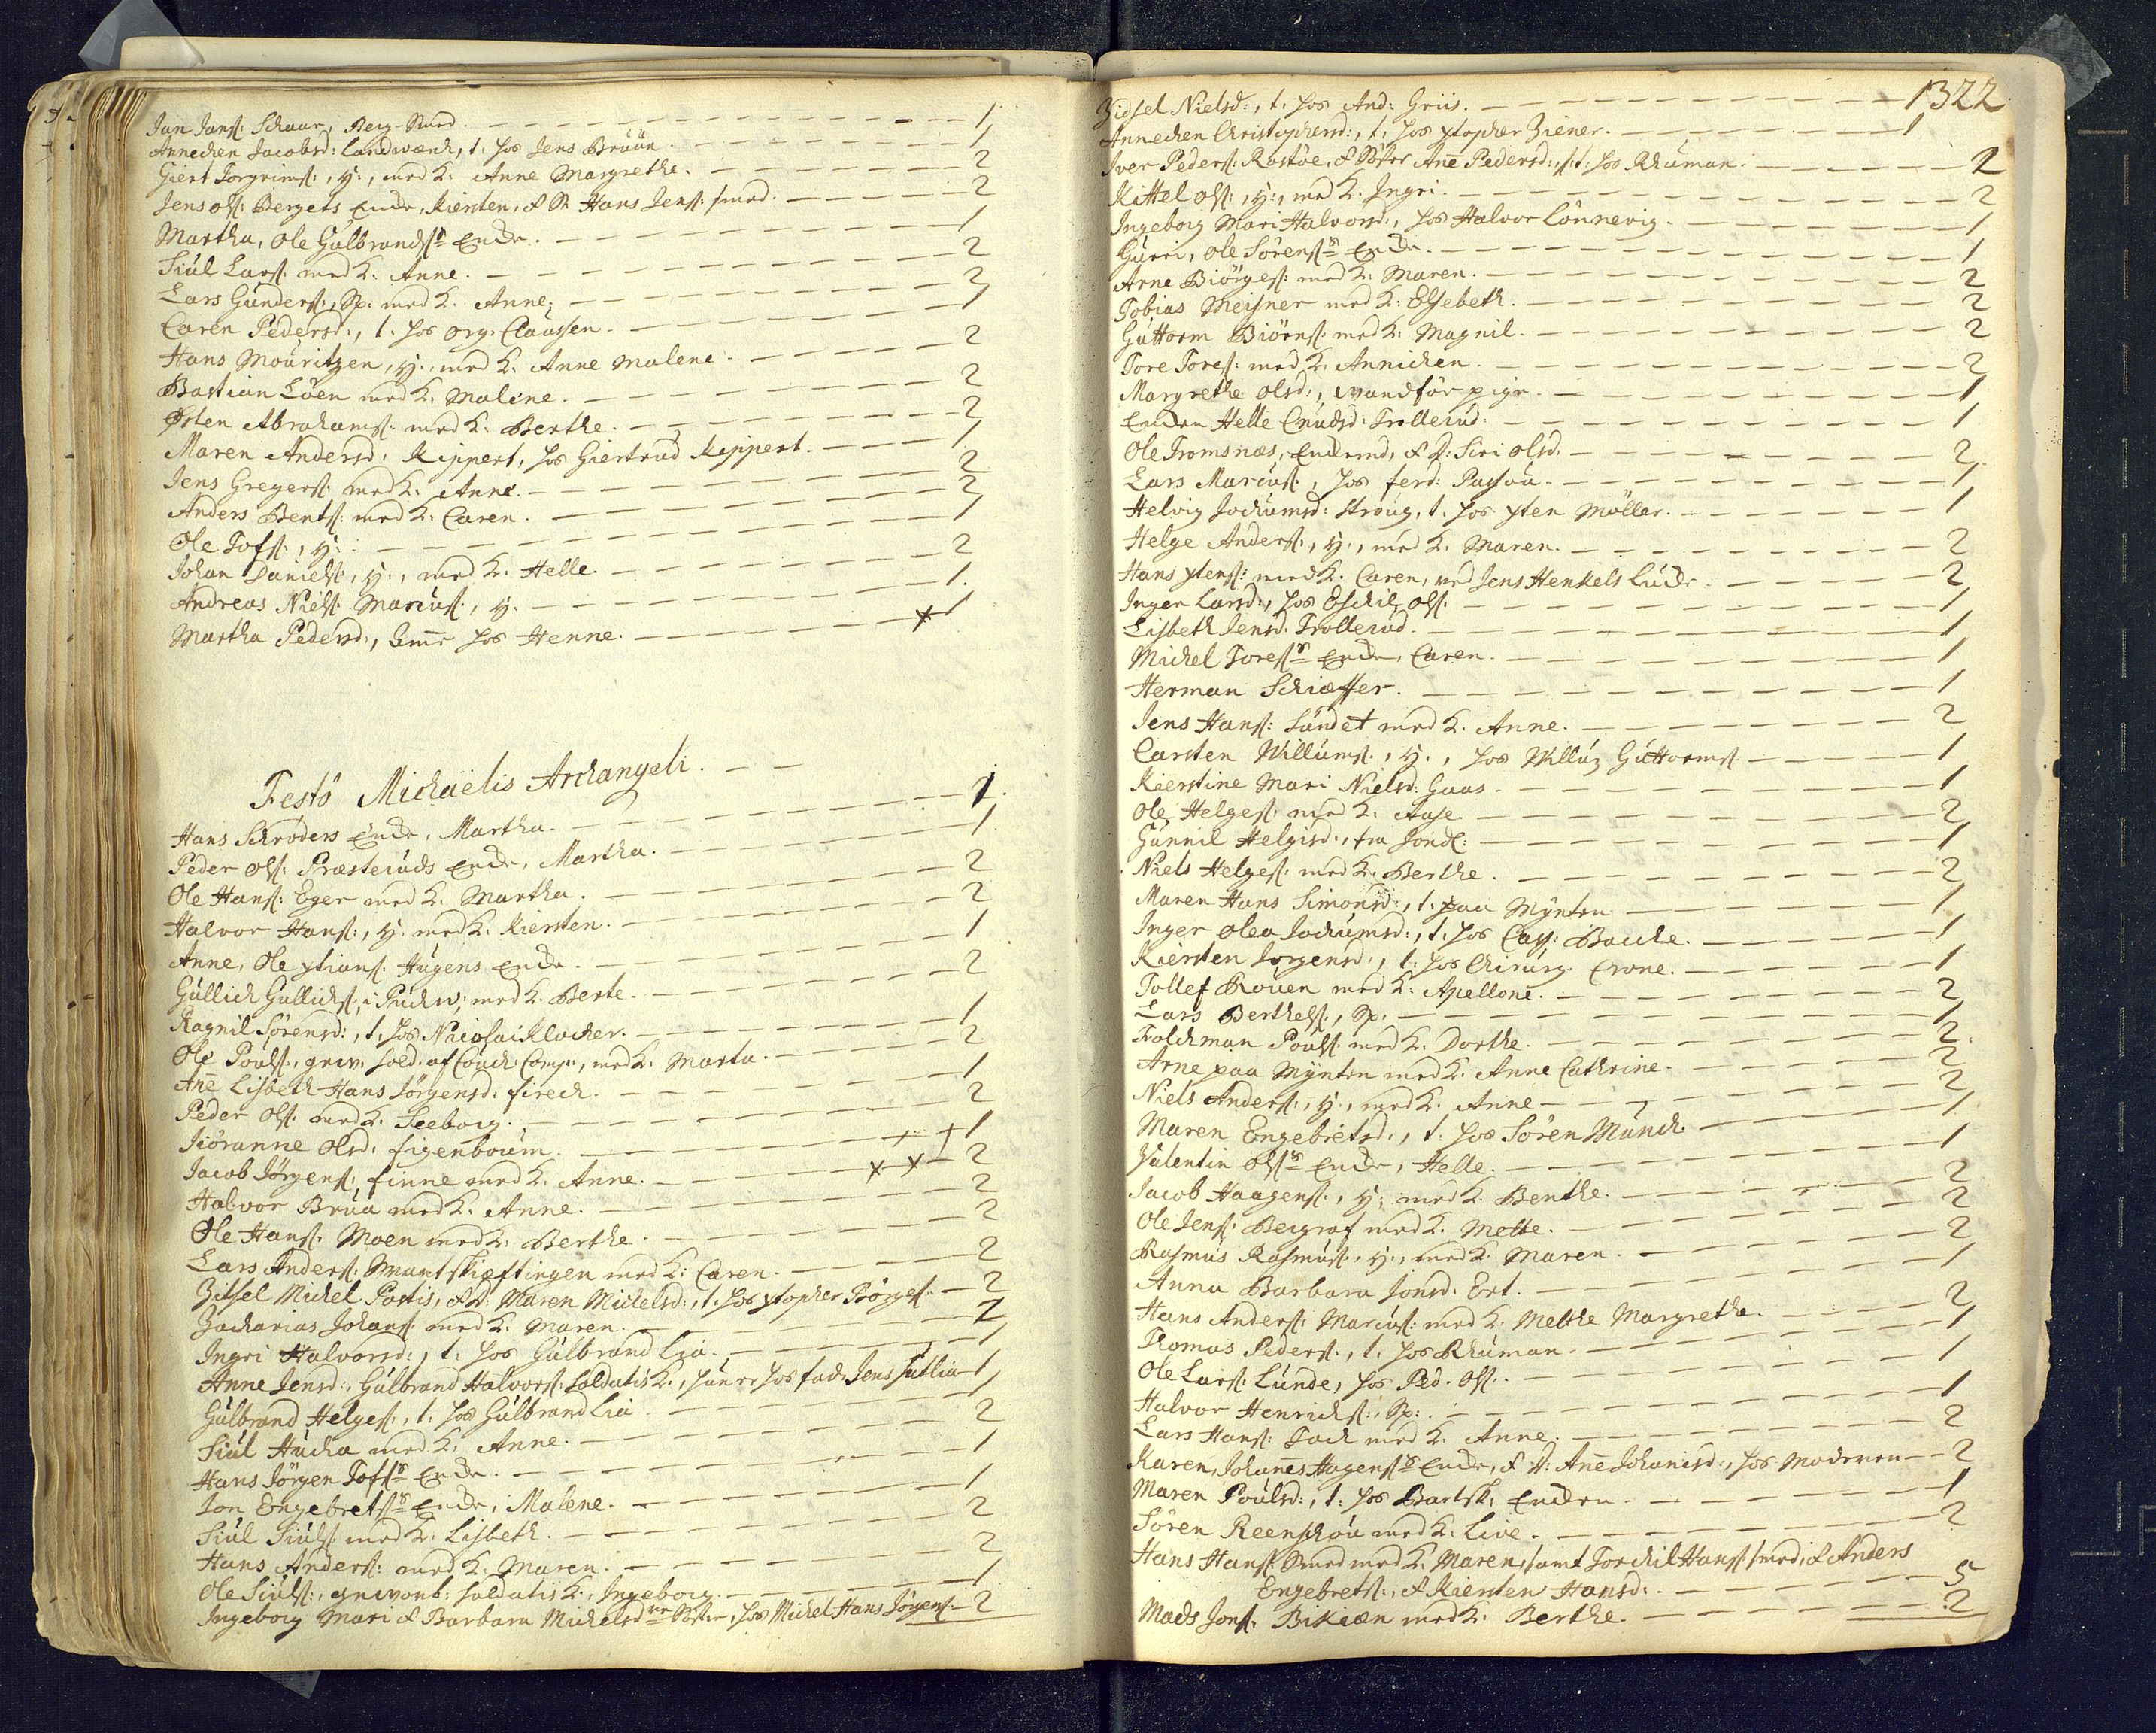 Jan Janß: Schaar, Berg-Smed. 1
Annechen Jacobsd: Landværck, t: hos Jens Bruün. 1
Giert Torgrimß:, y:, med K: Anne Margrethe. 2
Jens Olß: Bergets Encke, Kiersten, & S. Hans Jenß: smed. 2
Martha, Ole Gulbrandßs Encke. 1
Siul Larß: med K: Anne. 2
Lars Gunderß:, Sp: med K: Anne. 2
Caren Pedersd:, t: hos Org: Claussen. 1
Hans Mouritzen, y:, med K: Anne Malene. 2
Bastian Löen med K: Malene. 2
Østen Abrahamß: med K: Berthe. 2
Maren Andersd: Kippert, hos Giertrud Kippert. 1
Jens Gregerß: med K: Anne. 2
Anders Bentß: med K: Caren. 2
Ole Tofß:, y: 1
Johan Danielß:, y:, med K: Helle. 2
Andreas Nielß: Mariuß:, y. 1
Martha Pedersd:, hos Henne. x 1
Festo Michaëlis Archangeli.
Hans Schrøders Encke, Martha. 1
Peder Olß: Præsteruds Encke, Martha. 1
Ole Hanß: Eger med K: Martha. 2
Halvor Hanß:, y: med K: Kiersten. 2
Anne, Ole xtianß: Haugens Encke. 1
Gullich Gullichß: i Puckv: med K: Berte. 2
Ragnil Sörensd:, t: hos Nicolai Klocker. 1
Ole Poulß:, gev: Sold: af Couch: Comp:, med K: Marta. 2
Añe Lisbeth Hans Jörgensd: firech. 1
Peder Olß: med K: Seeborg. 2
Jöranne Olsd: figenboum. + + 1
Jacob Jörgenß: finne med K: Anne. x x 2
Halvor Brua med K: Anne. 2
Ole Hanß: Moen med K: Berthe. 2
Lars Anderß: Smartskieftingen med K: Caren. 2
Zitsel Michel Postis, & D: Maren Michelsd:, t: hos xtopher Börgeß. 2
Zacharias Johanß: med K: Maren. 2
Ingri Halvorsd:, t: hos Gulbrand Lia. 1
Anne Jensd:, Gulbrand Halvorß: Soldatis K:, hos fad: Jens Jutlia 1
Gulbrand Helgeß:, t: hos Gulbrand Lia. 1
Siul Hucka med K: Anne. 2
Hans Jörgen Tofßs Encke. 1
Jon Engebretßs Encke, Malene. 1
Siul Siulß: med K: Lisbeth. 2
Hans Anderß: med K: Maren. 2
Ole Siulß:, gevorb: Soldatis K:, Ingeborg. 1
Ingeborg Mari & Barbara Michelsdre Söstre, hos Michel Hans Jörgenß. 2
1322
Zidsel Nielsd:, t: hos And: Griis. 1
Annechen Christophersd:, t: hos xtopher Ziener. 1
Iver Pederß: Rostöe, & Söster Añe Pedersd:, t: hos Rhuman. 2
Kittel Olß:, y:, med K: Ingri. 2
Ingeborg Mari Halvorsd:, hos Halvor Lönnevig. 1
Gurri, Ole Sörenßs Encke. 1
Arne Biörgeß: med K: Maren. 2
Tobias Meisner med K: Elsebeth. 2
Guttorm Biörnß: med K: Magnil. 2
Tore Toreß: med K: Annichen. 2
Margrethe Olsd:, vandför pige. 1
Encken Helle Cnudsd: Trollerud. 1
Ole Tromsnæs, Enckemd, & D: Siri Olsd. 2
Lars Mariuß:, hos ferd: Passou. 1
Helvig Jochumsd: Stroug, t: hos xten Möller. 1
Helge Anderß:, y:, med K: Maren. 2
Hans xtenß: med K: Caren, ved Jens Henkels Lucke. 2
Inger Larsd:, hos Eschil Olß. 1
Lisbeth Jensd: Trollerud. 1
Michel Toreßs Encke, Caren. 1
Herman Schiæffer. 1
Jens Hanß: Sundet med K: Anne. 2
Carsten Willumß:, y:, hos Willum Guttormß 1
Kierstine Mari Nielsd: Gaas. 1
Ole Helgeß: med K: Aase. 2
Gunnil Helgisd:, fra Jond: 1
Niels Helgeß: med K: Berthe. 2
Maren Hans Simonsd:, t: paa Mynten 1
Inger Olea Jochumsd:, t: hos Cas: Bacche. 1
Kiersten Jörgensd:, t: hos Chirurg: Crone. 1
Tollef Rouen med K: Apellone. 2
Lars Berthelß:, Sp. 1
Folchman Poulß: med K: Dorthe. 2
Arne paa Mynten med K: Anne Cathrine. 2
Niels Anderß:, y:, med K: Anne 2
Maren Engebretsd:, t: hos Sören Munch 1
Valentin Olßs Encke, Helle. 1
Jacob Haagenß:, y: med K: Benthe. 2
Ole Jenß: Bergraf med K: Mette. 2
Rasmus Rasmuß:, y:, med K: Maren. 2
Anna Barbara Jonsd: Ert. 1
Hans Anderß: Mariuß: med K: Melthe Margretha. 2
Thomas Pederß:, t: hos Rhuman. 1
Ole Larß: Lunde, hos Ped: Olß. 1
Halvor Henrichß:, Sp: 1
Lars Hanß: Tack med K: Anne. 2
Karen, Johañes Hagenßs Encke, & D: Añe Johanisd:, hos Moderen 2
Maren Poulsd:, t: hos Bartsk: Encken. 1
Sören Reenschou med K: Live. 2
Hans Hanß: Smed med K: Maren, samt Torchil Hanß: smed, & Anders
Engebretß:, & Kiersten Hansd: 5
Mads Jonß: Bikiæn med K: Berthe. 2